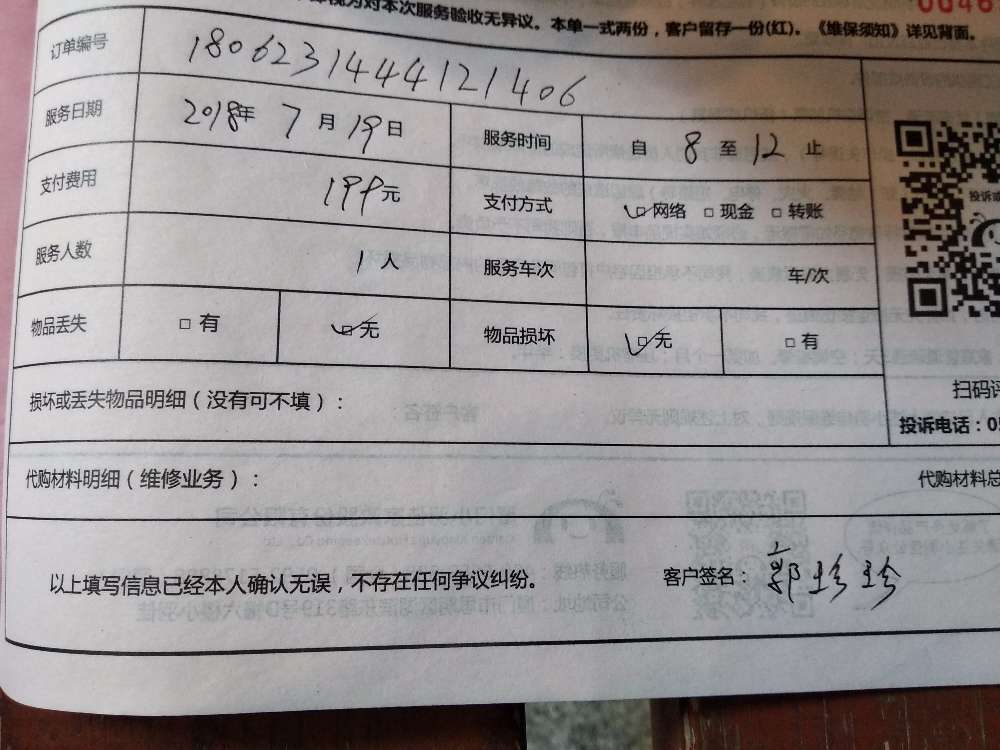 视为对本次服务验收无异议。本单一式两份，客户留存一份(红)。《维保须知》详见背面。
订单编号 1806231444121406
服务日期 2018年 7 月 19 日 服务时间 自 8 至 12 止
支付费用 199元 支付方式 ☑网络 □现金 □转账
服务人数 1 人 服务车次 车/次
物品丢失 □ 有 ☑无 物品损坏 ☑无 □有
损坏或丢失物品明细（没有可不填）：
扫码评
投诉电话：05
代购材料明细（维修业务）：
代购材料总
以上填写信息已经本人确认无误，不存在任何争议纠纷。 客户签名：郭珍珍